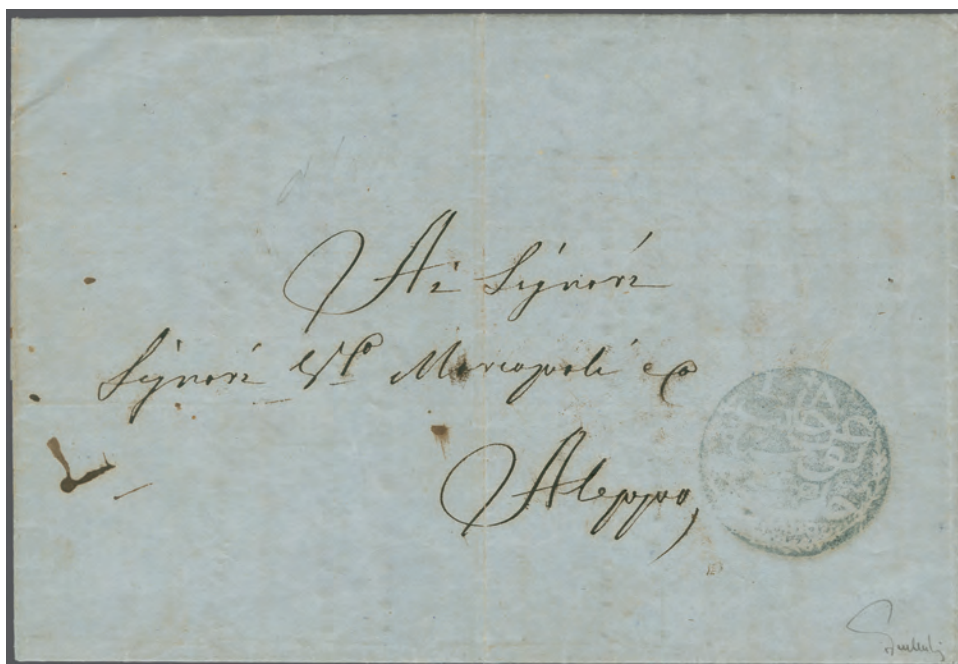 Ai Signori
Signori Vto Marcopoli &Co
Aleppo,